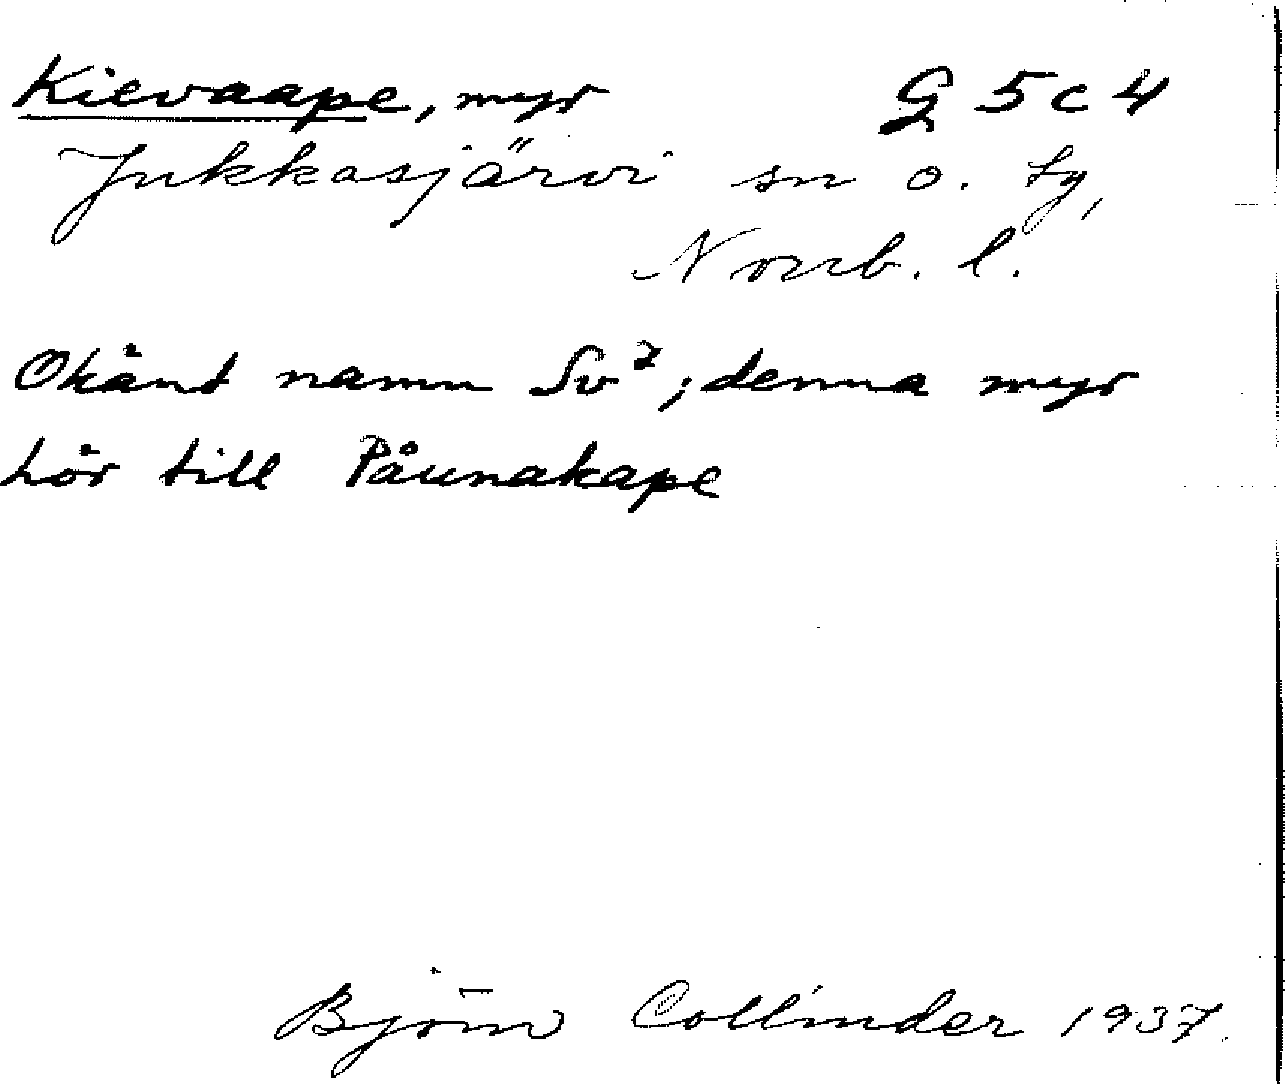 Kievaape, myr G 5 c 4
Jukkasjärvi sn o. tg,
Norrb. l.
Okänt namn Sv²; denna myr
hör till Påunakape
Björn Collinder 1937.